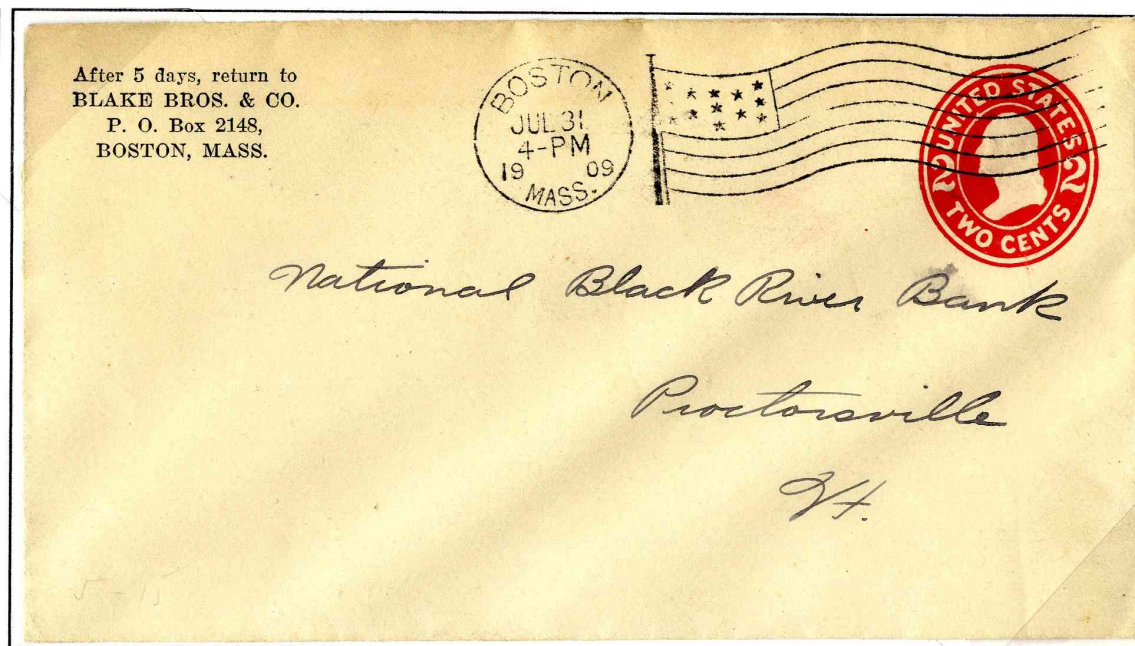 After 5 days, return to
BLAKE BROS. & CO.
P. O. Box 2148,
BOSTON, MASS.
BOSTON
JUL 31
4-PM
19 09
MASS.
UNITED STATES
2 2
TWO CENTS
National Black River Bank
Proctorsville
Vt.
5-15